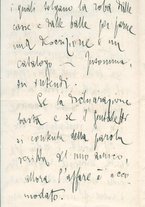 i quali tolgano la roba dalle
casse e dalle balle per farne
una descrizione e un
catalogo — Insomma,
tu intendi.
Se la dichiarazione
basta e se i
si contenta della parola
scritta del mio amico,
allora l'affare è acco-
modato.